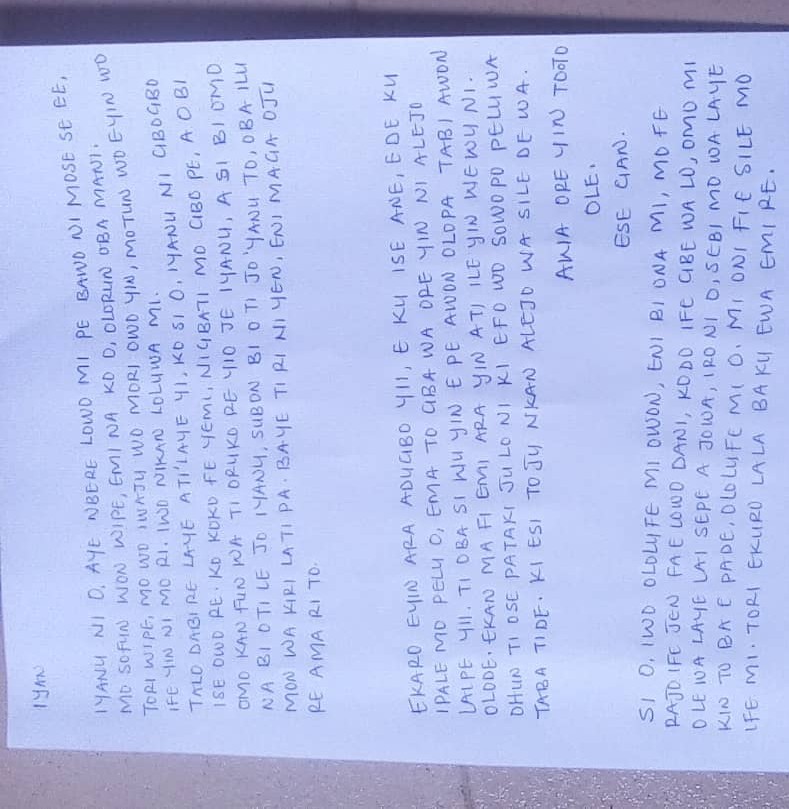 IYAN
IYANU NI O, AYE NBERE LOWO MI PE BAWO NI MOSE SE EE,
MO SOFUN WON WIPE, EMI NA KO O, OLORUN OBA MANI.
TORI WIPE, MO WO IWAJU WO MORI OWO YIN, MOTUN WO EYIN WO
IFE YIN NI MO RI. IWO NIKAN LOLUWA MI.
TALO DABI RE LAYE ATI'LAYE YI, KO SI O, IYANU NI GBOGBO
ISE OWO RE. KO KOKO FE YEMI, NIGBATI MO GBO PE, A O BI
OMO KAN FUN WA TI ORUKO RE YIO JE IYANU, A SI BI OMO
NA BI OTI LE JO IYANU, SUBON BI O TI JO'YANU TO, OBA ILU
MON WA KIRI LATI PA. BAYE TI RI NI YEN, ENI MAGA OJU
RE AMA RI TO.
EKARO EYIN ARA ADUGBO YII, E KU ISE ANE, EDE KU
IPALE MO PELU O, EMA TO GBA WA ORE YIN NI ALEJO
LALPE YII. TI OBA SI WU YIN E PE AWON OLOPA TABI AWON
OLODE. EKAN MA FI EMI ARA YIN ATI ILE YIN WEWU NI.
OHUN TI OSE PATAKI JU LO NI KI EFO WO SOWO PO PELU WA
TABA TI DE. KI ESI TO JU NKAN ALEJO WA SILE DE WA.
AWA ORE YIN TOOTO
OLE.
ESE GAN.
SI O, IWO OLOLUFE MI OWON, ENI BI ONA MI, MO FE
RAJO IFE JEN FA E LOWO DANI, KODO IFE GBE WA LO, OMO MI
O LE WA LAYE LAI SEPE A JOWA, IRO NI O, SEBI MO WA LAYE
KIN TO BA E PADE, OLOLUFE MI O. MI ONI FI E SILE MO
IFE MI. TORI EKURO LALA BA KU EWA EMI RE.